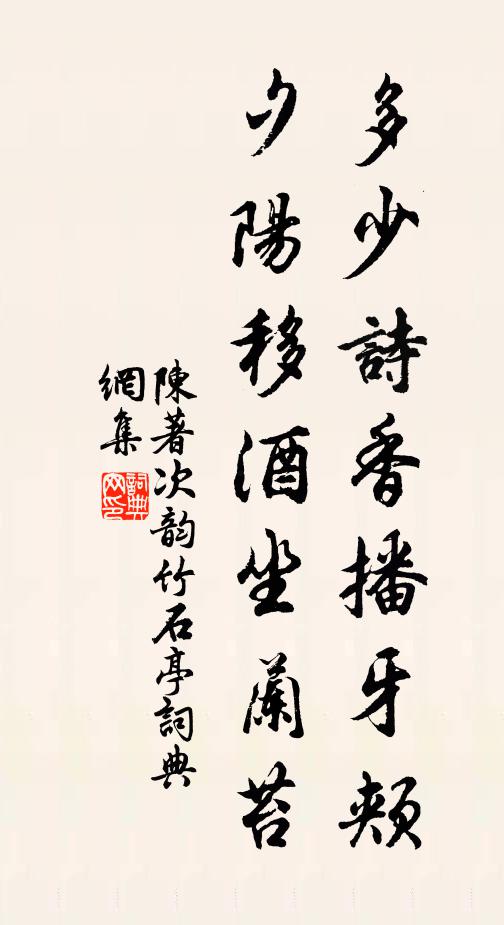 多少詩香播牙頰
夕陽移酒坐蘭苔
陳著次韵竹石亭詞典
網集
詞典
网印